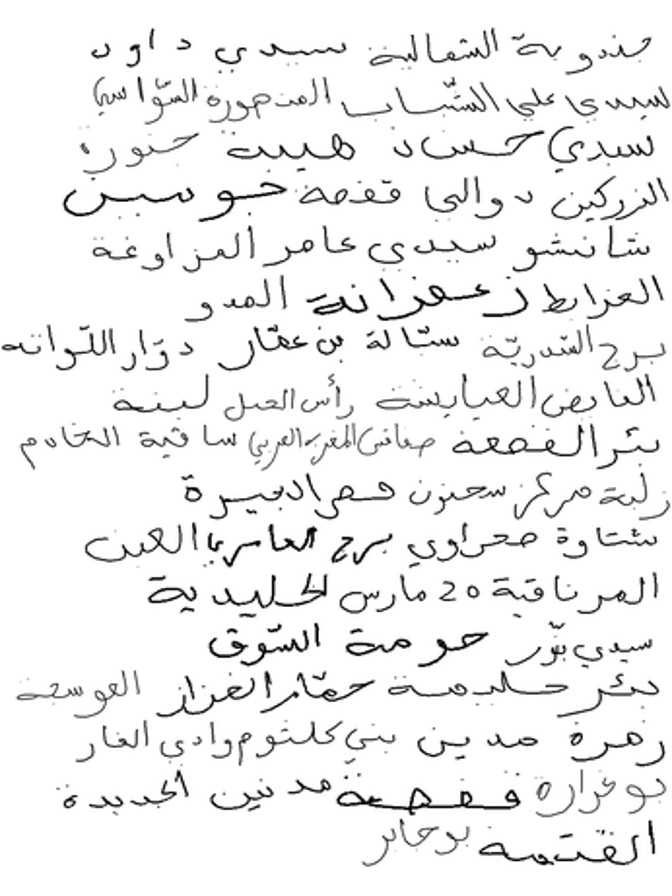 جندوبة الشمالية سيدي داود
سيدي علي الشباب المنصورة السواسي
سيدي حساد هيبب خنورة
الزركين دوالي قفصة حوسين
شانشو سيدي عامر المزاوغة
العزابط زعفرانة المدو
برج السدرية ستالة بن عمار دوّار اللواتة
الفايض العبايشة رأس الجبل لبنة
بئر القصعة صفاقس المغرب العربي ساقية الخادم
زلبة مركز سحنون قصر الجيرة
شتاوة صحراوي برج العامري العين
المرناقية 20 مارس الخليدية
سيدي بوّر حومة السّوق
بئر حليمة حمّام الغزاز العوسجة
زمرة مدين بني كلثوم وادي الغار
بوغرارة قفصة مدنين الجديدة
القتمة بوجابر